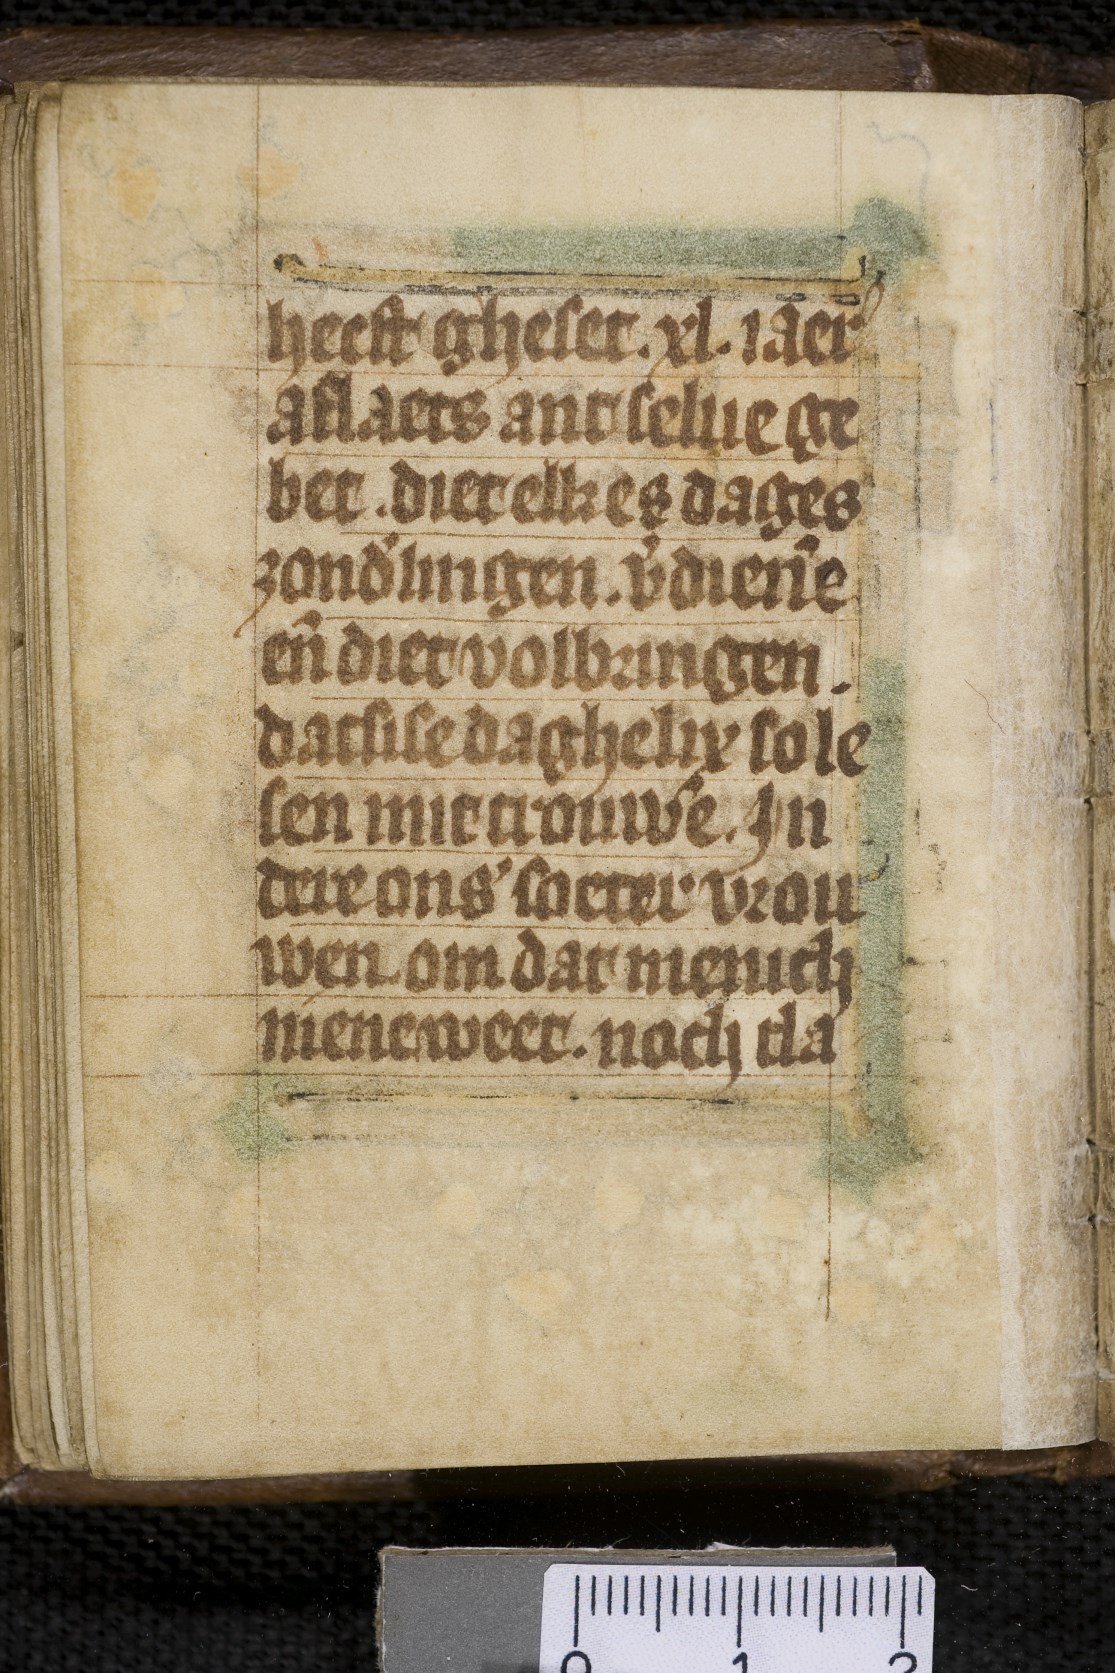 heeft gheset. xl. iaer
aflaets ant selue ge
bet. diet elkes dages
zond᾽lingen. v᾽dienē
eñ diet volbringen.
dat si se daghelix so le
sen mit trouwē. In
dere ons᾽ soeter vrou
wen om dat menich
mene weet. noch cla
0 1 2